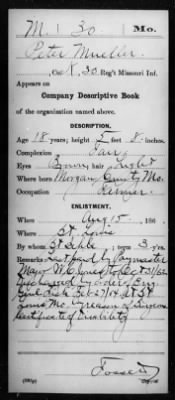 M. 30 Mo.
Peter Mueller
, Co. K, 30 Reg't Missouri Inf.
Appears on
Company Descriptive Book
of the organization named above.
DESCRIPTION.
Age 18 years; height 5 feet 8 inches.
Complexion Fair
Eyes Brown; hair Light
Where born Morgan County Mo.
Occupation Farmer
ENLISTMENT.
When Aug 15, 186 .
Where St. Louis
By whom ; term 3 y'rs.
Remarks: Last paid by Paymaster
Major to Oct 31/63
Discharged by order
Feb 27/64 at St
Louis Mo by reason of Surgeons
certificate of Disability
Copyist.